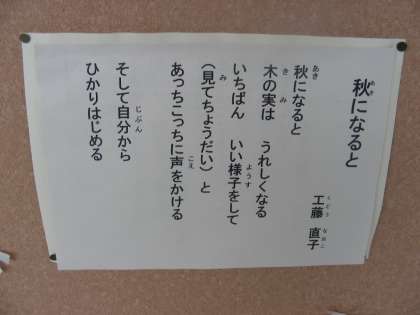 秋になると
工藤 直子
秋になると
木の実は うれしくなる
いちばん いい様子をして
(見てちょうだい) と
あっちこっちに声をかける
そして自分から
ひかりはじめる